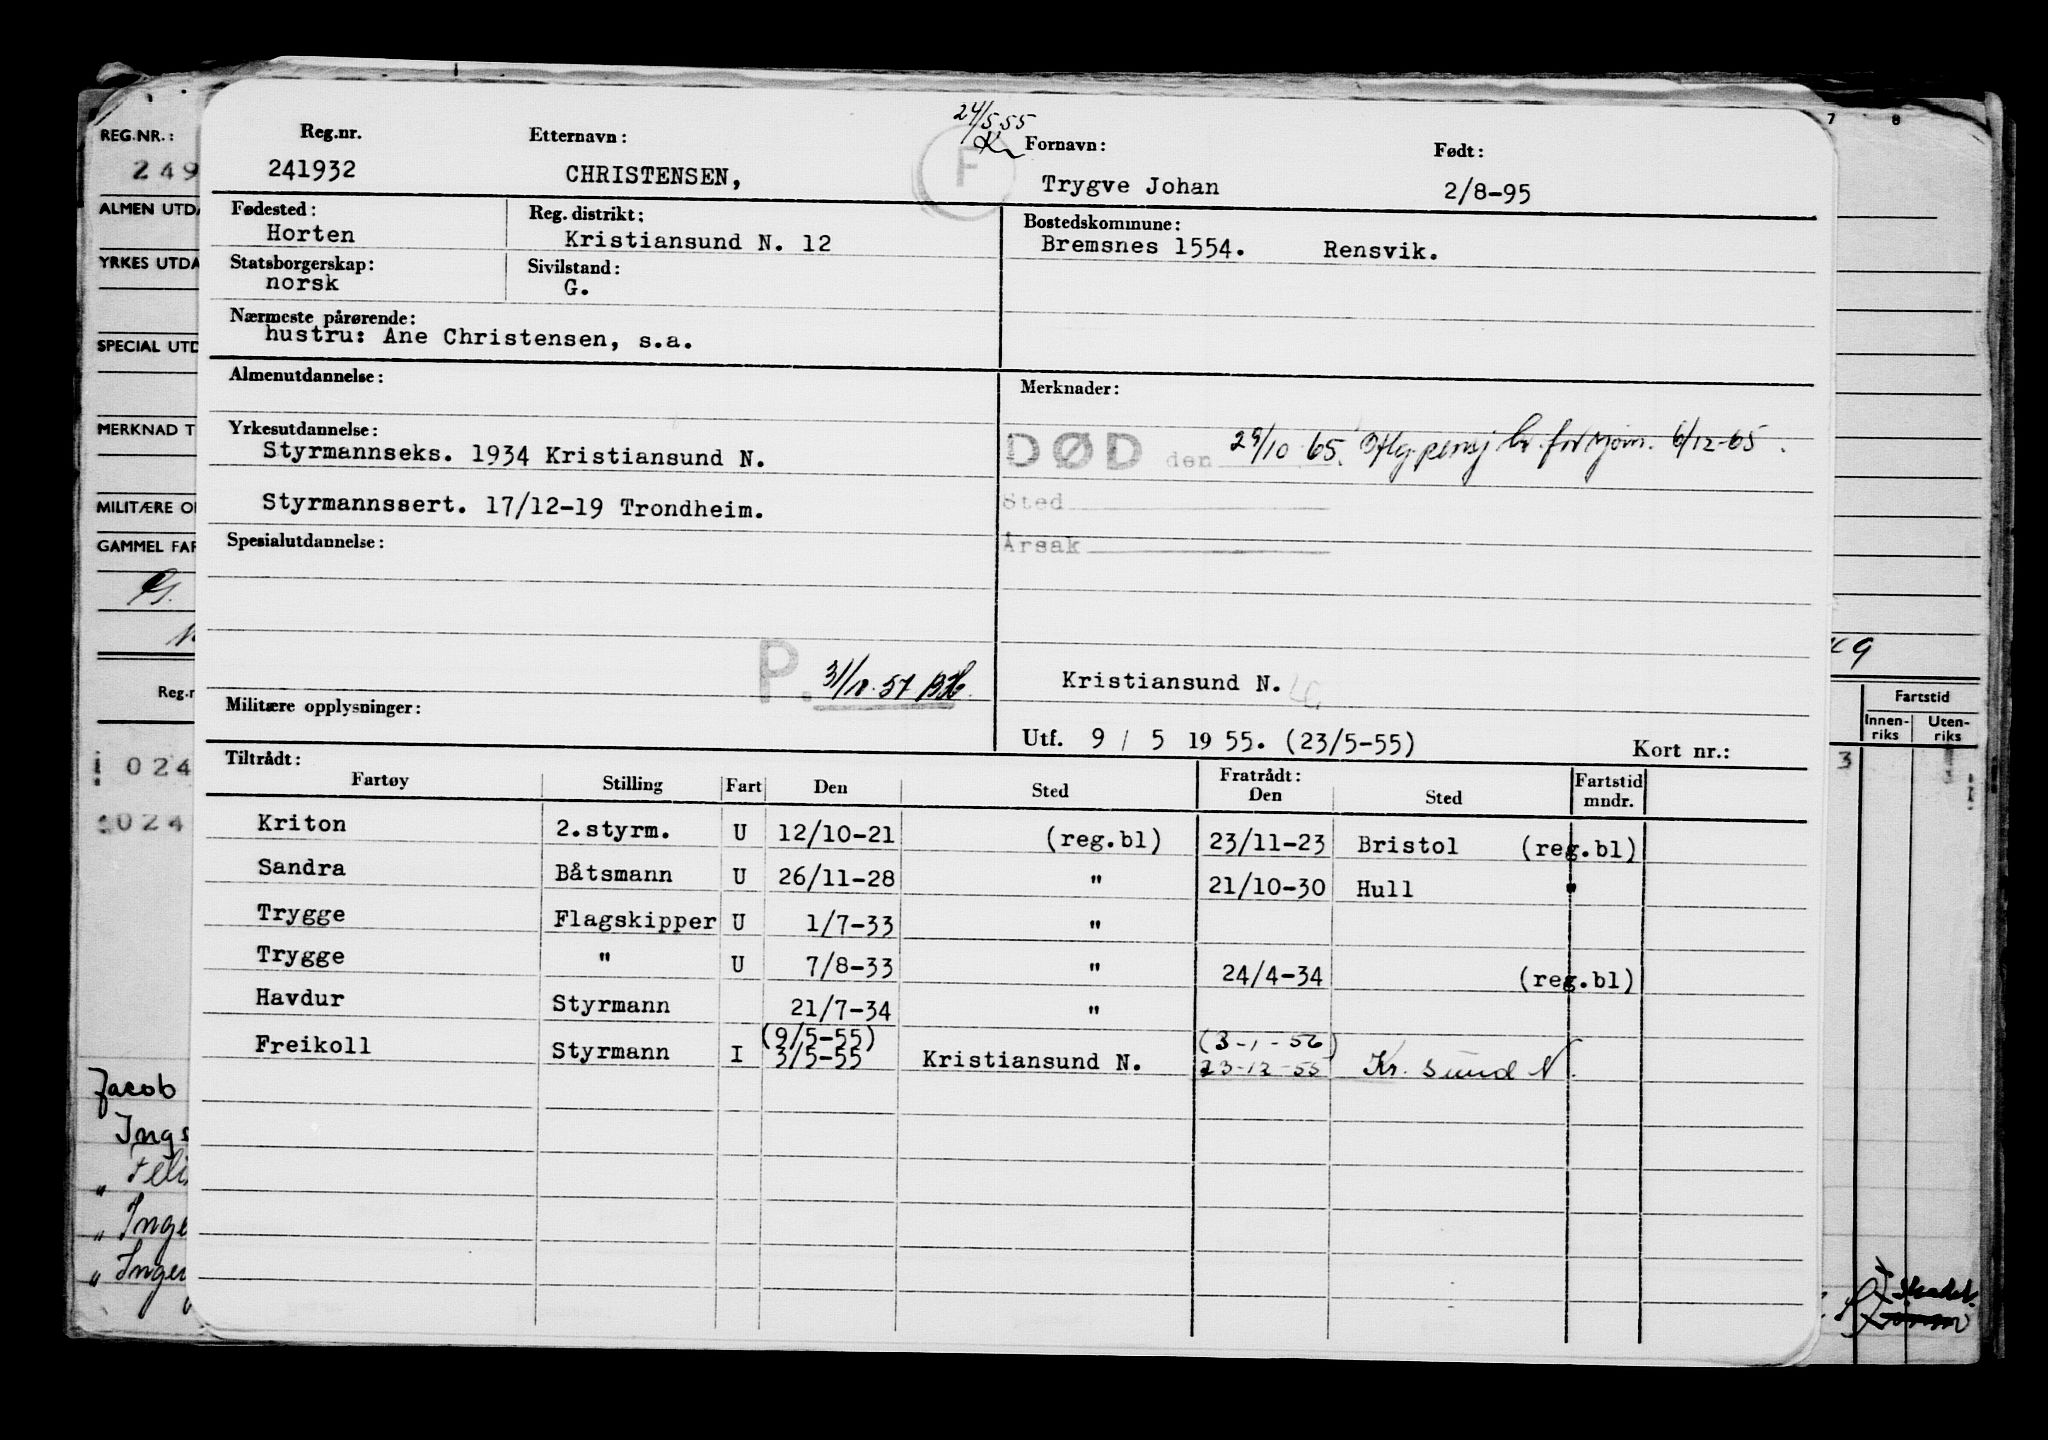 24/5 55
Reg.nr. Etternavn: F Fornavn: Født:
241932 CHRISTENSEN, Trygve Johan 2/8-95
Fødested: Reg. distrikt: Bostedskommune:
Horten Kristiansund N. 12 Bremsnes 1554. Rensvik.
Statsborgerskap: Sivilstand:
norsk G.
Nærmeste pårørende:
hustru: Ane Christensen, s.a.
Almenutdannelse: Merknader:
Yrkesutdannelse:
Styrmannseks. 1934 Kristiansund N.
DØD den 29/10 65. 6/12-65.
Styrmannssert. 17/12-19 Trondheim.
Sted
Spesialutdannelse: Årsak
P. Kristiansund N.
Militære opplysninger:
Utf. 9 / 5 19 55. (23/5-55) Kort nr.:
Tiltrådt: Fratrådt:
Fartøy Stilling Fart Den Sted Den Sted Fartstid mndr.
Kriton 2.styrm. U 12/10-21 (reg.bl) 23/11-23 Bristol (reg.bl)
Sandra Båtsmann U 26/11-28 " 21/10-30 Hull "
Trygge Flagskipper U 1/7-33 "
Trygge " U 7/8-33 " 24/4-34 (reg.bl)
Havdur Styrmann 21/7-34 "
(9/5-55) (3-1-56)
Freikoll Styrmann I 3/5-55 Kristiansund N. 23-12-55 Kr. sund N.
REG.NR.:
249
ALMEN UTDA
YRKES UTDA
SPECIAL UTD
MERKNAD T
MILITÆRE O
GAMMEL FAR
Reg.n
024
024
Jacob
7 8
Fartstid
Innen-riks Uten-riks
3